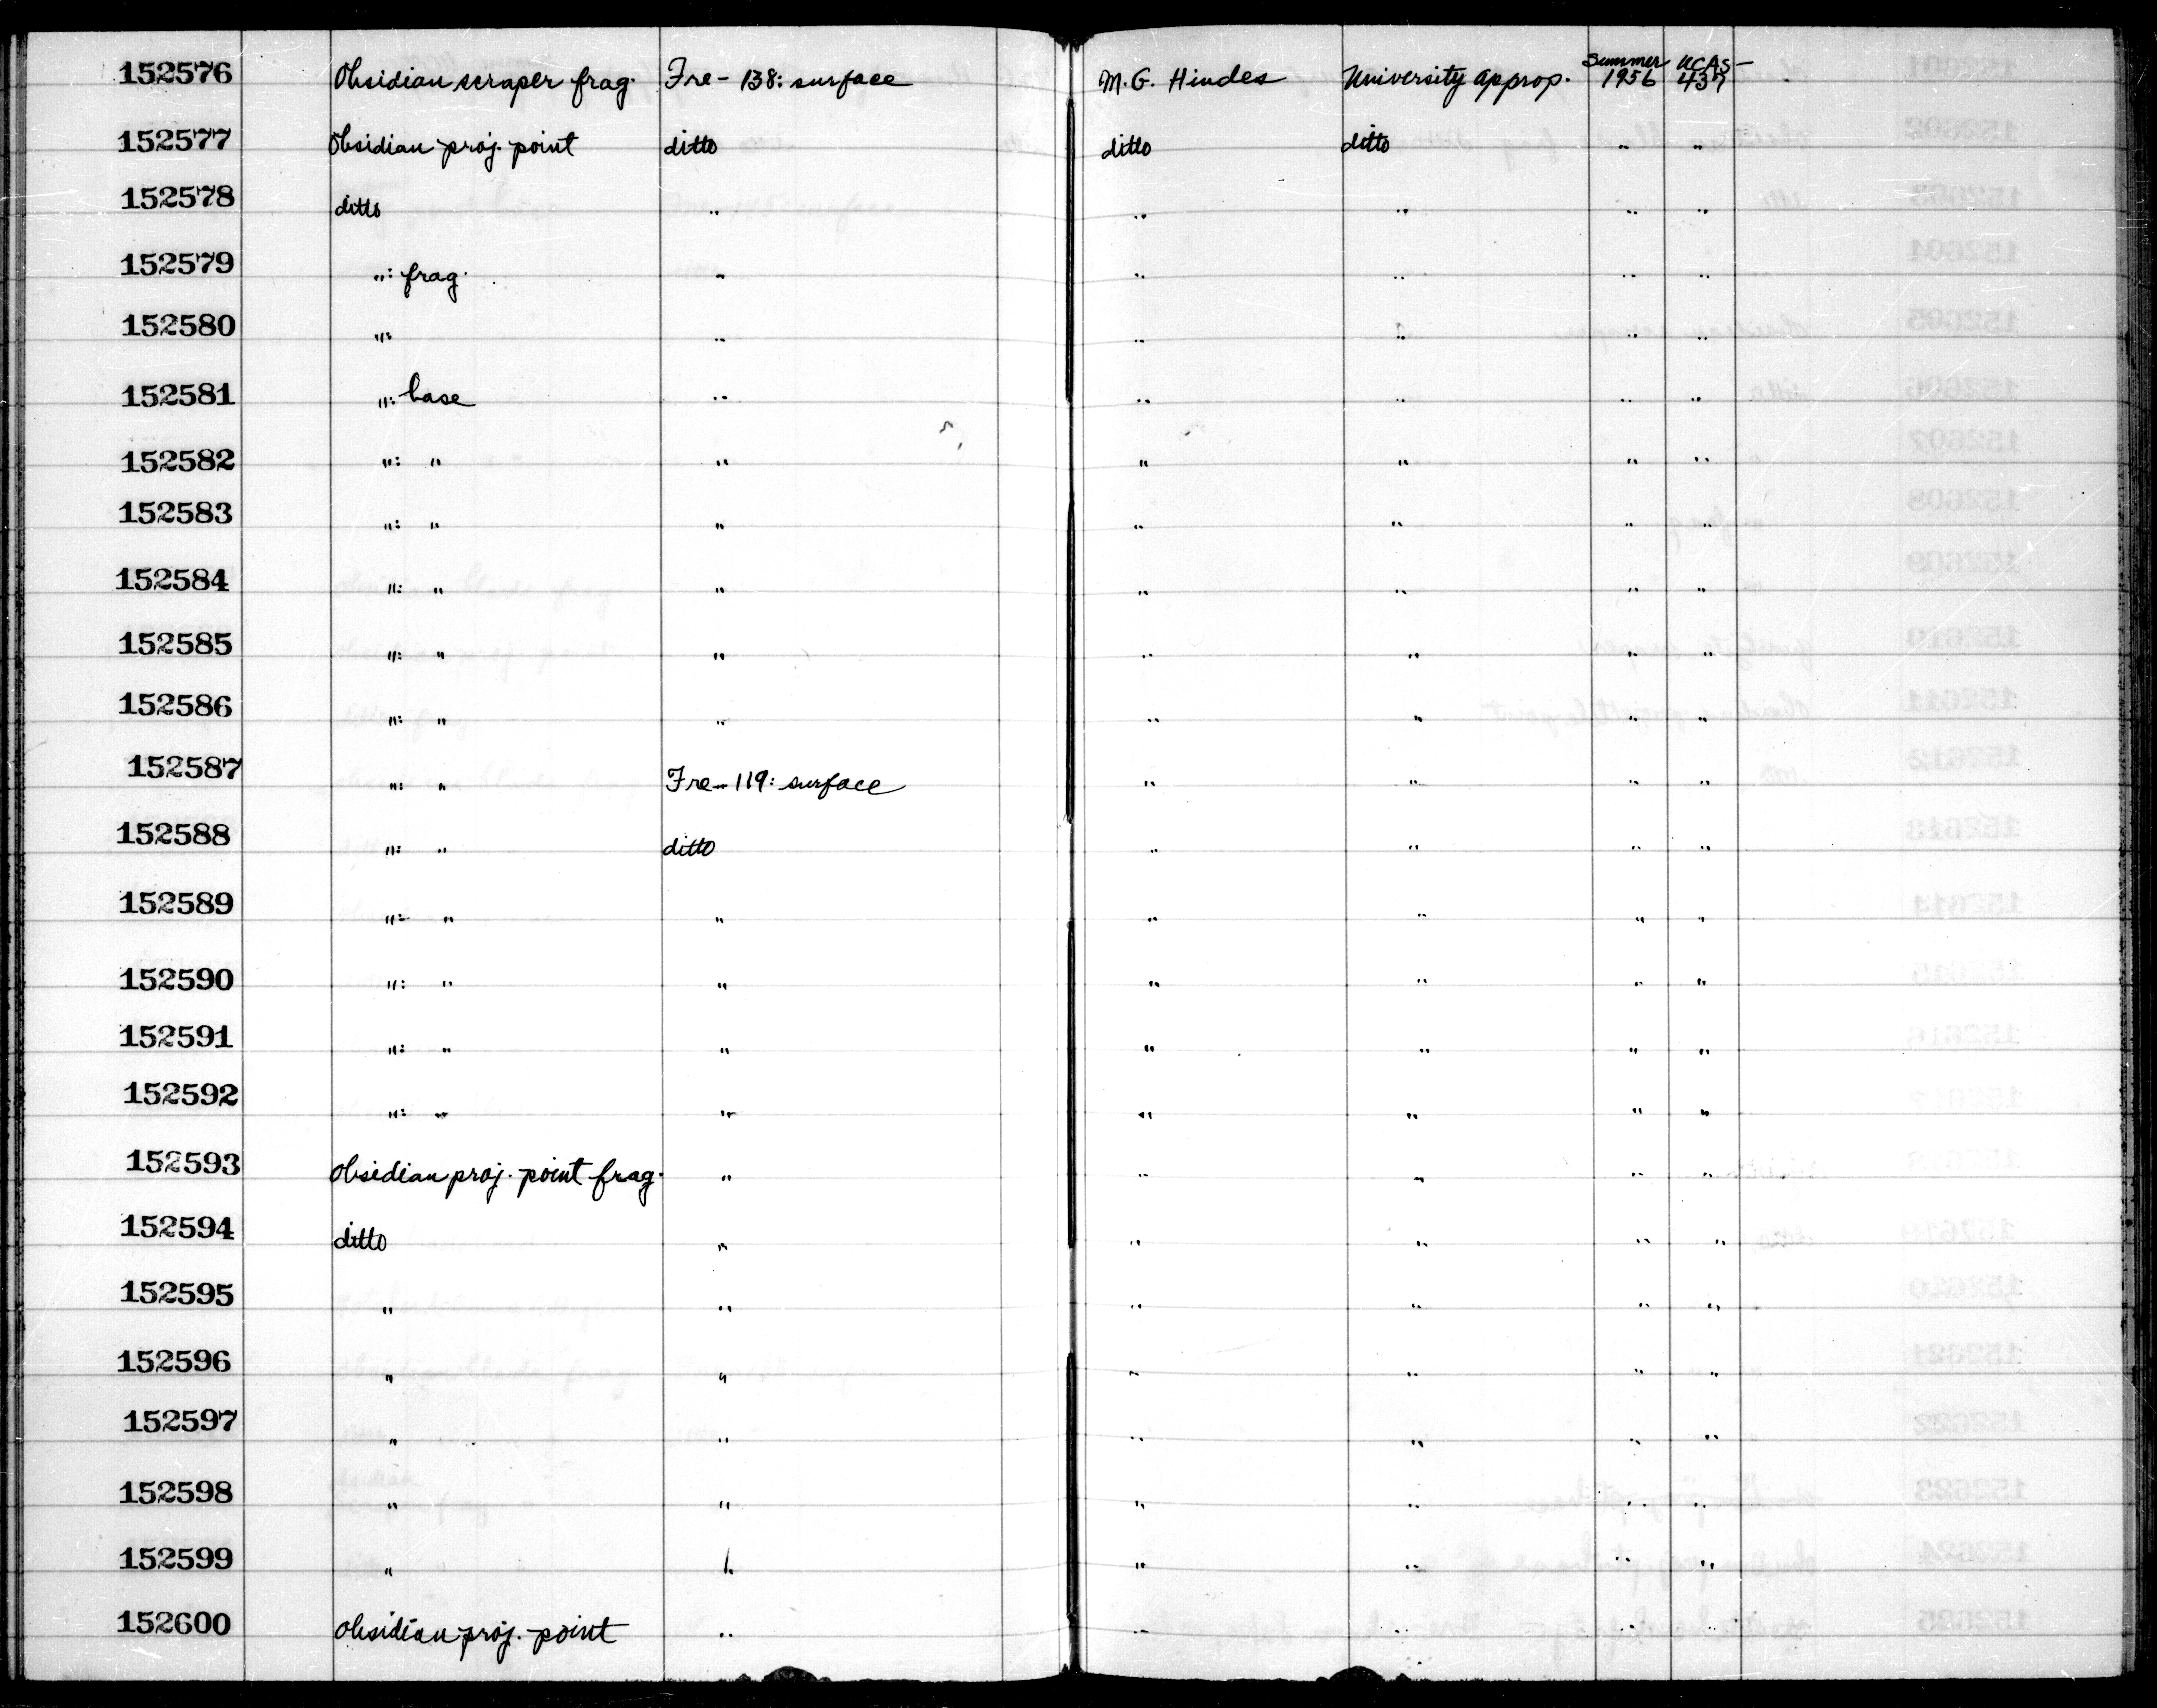 152576 Obsidian scraper frag. Fre-138: surface M.G. Hindes University approp. Summer 1956 UCAS-437
152577 Obsidian proj. point ditto ditto ditto " "
152578 ditto " " " " "
152579 ": frag. " " " " "
152580 ": " " " " "
152581 ": base " " " " "
152582 ": " " " " " "
152583 ": " " " " " "
152584 ": " " " " " "
152585 ": " " " " " "
152586 ": " " " " " "
152587 ": " Fre-119: surface " " " "
152588 ": " ditto " " " "
152589 ": " " " " " "
152590 ": " " " " " "
152591 ": " " " " " "
152592 ": " " " " " "
152593 Obsidian proj. point frag. " " " " "
152594 ditto " " " " "
152595 " " " " " "
152596 " " " " " "
152597 " " " " " "
152598 " " " " " "
152599 " " " " " "
152600 Obsidian proj. point " " " " "